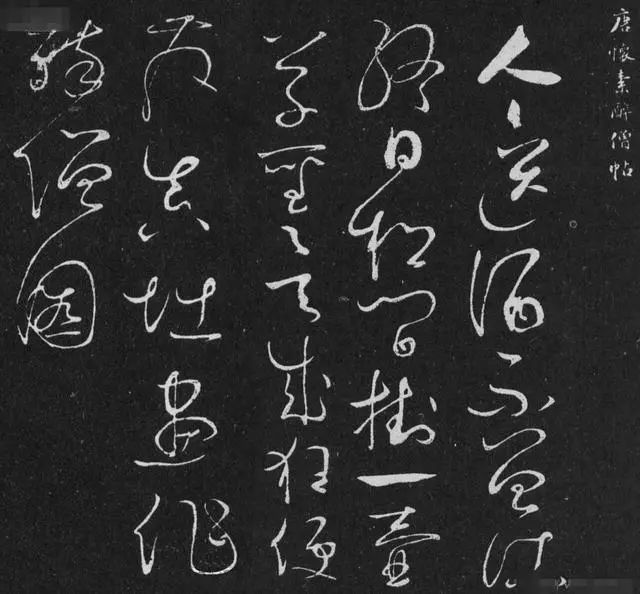 唐懷素醉僧帖
人人送酒不曾沽
終日松間掛一壺
草聖欲成狂便
發真堪畫作
醉僧圖